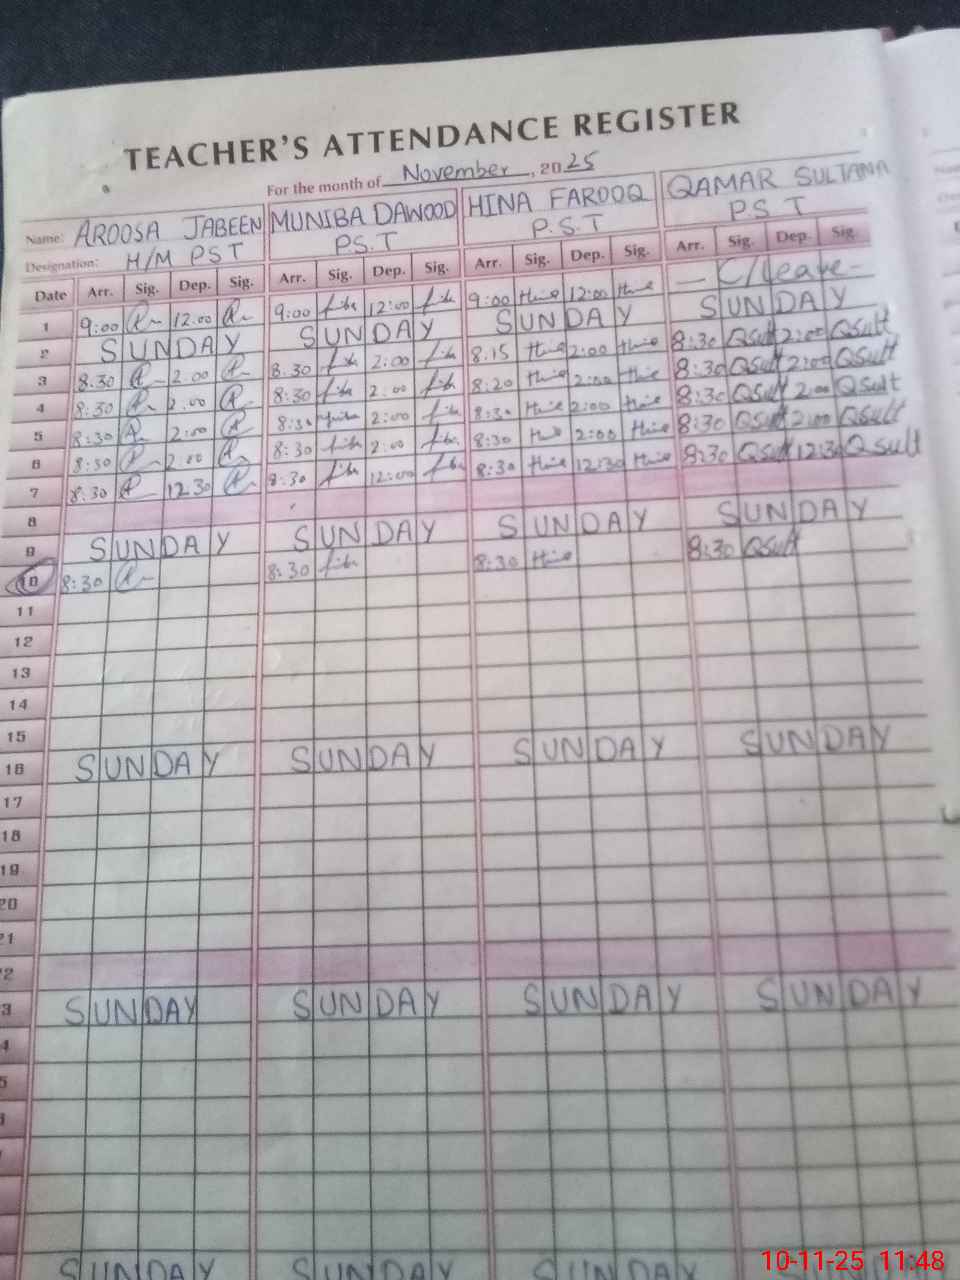 TEACHER'S ATTENDANCE REGISTER
For the month of November, 2025
Name: AROOSA JABEEN MUNIBA DAWOOD HINA FAROOQ QAMAR SULTANA
Designation: H/M PST PS.T P.S.T P.S T
Date Arr. Sig. Dep. Sig. Arr. Sig. Dep. Sig. Arr. Sig. Dep. Sig. Arr. Sig. Dep. Sig.
1 9:00 12:00 9:00 12:00 9:00 12:00 — C/leave -
2 SUNDAY SUNDAY SUNDAY SUNDAY
3 8:30 2:00 8:30 2:00 8:15 2:00 8:30 Qsult 2:00 Qsult
4 8:30 2:00 8:30 2:00 8:20 2:00 8:30 Qsult 2:00 Qsult
5 8:30 2:00 8:30 2:00 8:30 2:00 8:30 Qsult 2:00 Qsult
6 8:30 2:00 8:30 2:00 8:30 2:00 8:30 Qsult 2:00 Qsult
7 8:30 12:30 8:30 8:30 12:30 8:30 Qsult 12:30 Qsult
8
9 SUNDAY SUNDAY SUNDAY SUNDAY
10 8:30 8:30 8:30 8:30 Qsult
11
12
13
14
15
16 SUNDAY SUNDAY SUNDAY SUNDAY
17
18
19
20
21
2
3 SUNDAY SUNDAY SUNDAY SUNDAY
4
5
SUNDAY SUNDAY SUNDAY SUNDAY
10-11-25 11:48